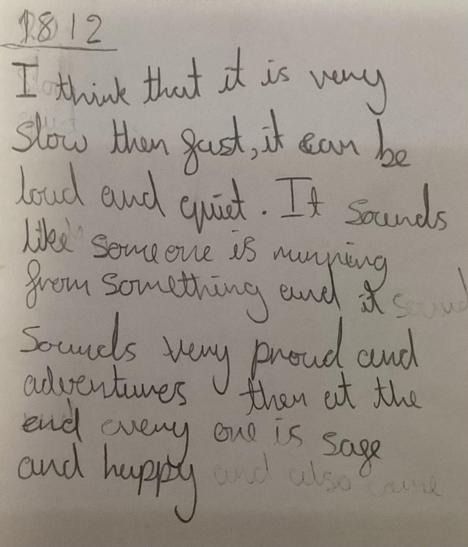 1812
I think that it is very
slow then fast, it can be
loud and quiet. It sounds
like someone is running
from something and it sound
sounds very proud and
adventures then at the
end every one is safe
and happy and also came